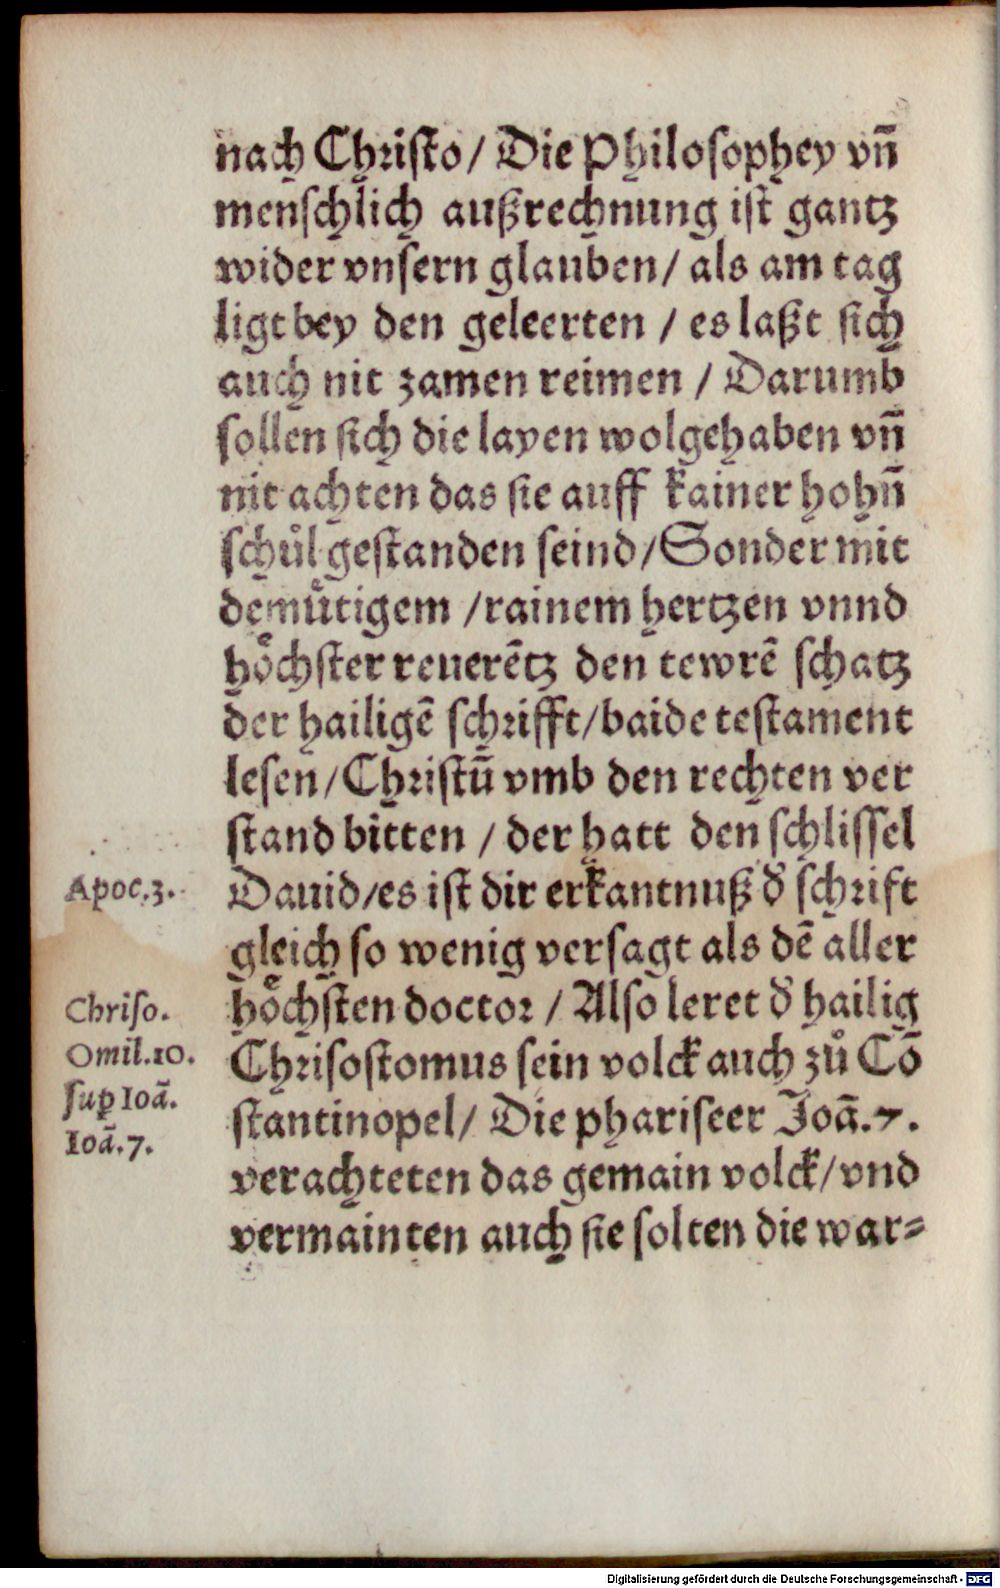 nach Christo/ Die Philosophey vn̄
menschlich außrechnung ist gantz
wider vnsern glauben/ als am tag
ligt bey den geleerten / es laßt sich
auch nit zamen reimen / Darumb
sollen sich die layen wolgehaben vn̄
nit achten das sie auff kainer hohn̄
schůl gestanden seind/Sonder mit
demuͤtigem /rainem hertzen vnnd
hoͤchster reuerētz den tewrē schatz
der hailigē schrifft/baide testament
lesen/Christū vmb den rechten ver
stand bitten / der hatt den schlissel
Apoc.3.
Dauid/es ist dir erkantnuß d̄ schrift
gleich so wenig versagt als dē aller
Chriso.
hoͤchsten doctor / Also leret d̄ hailig
Omil.10.
Chrisostomus sein volck auch zů Cō
sup Ioā.
stantinopel/ Die phariseer Joā.7.
Ioā.7.
verachteten das gemain volck/vnd
vermainten auch sie solten die war⸗
Digitalisierung gefördert durch die Deutsche Forschungsgemeinschaft - DFG